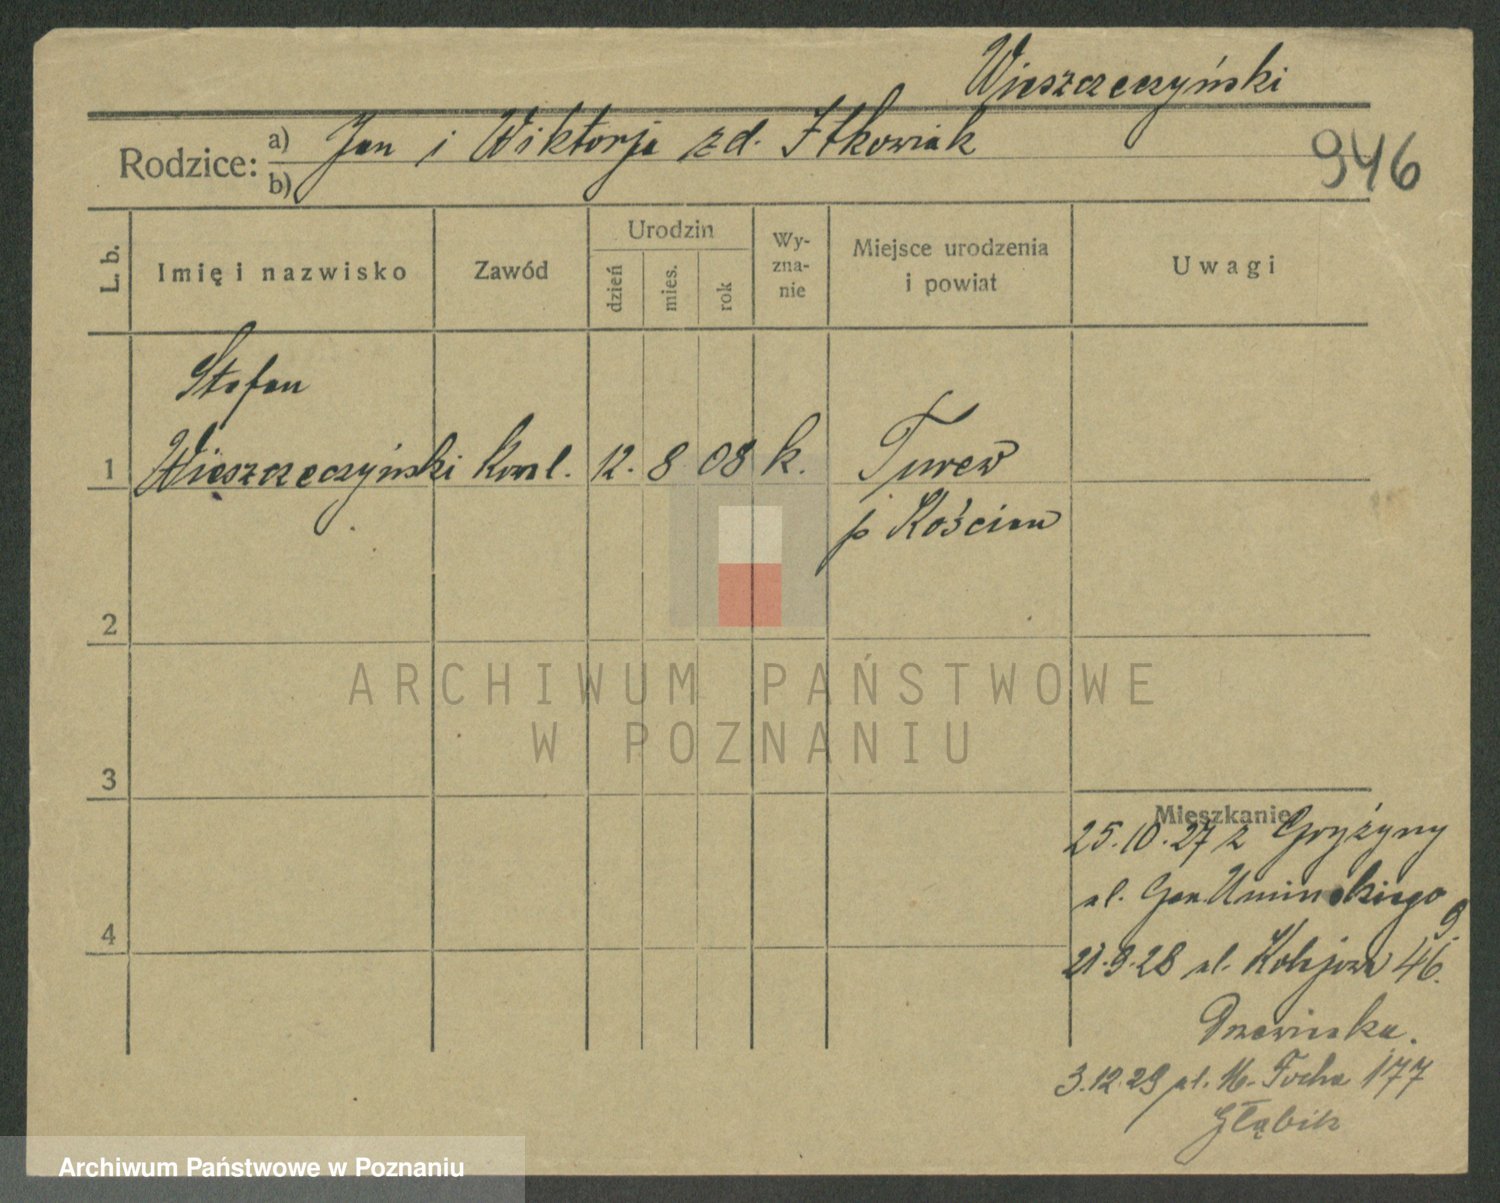 Wieszczeczyński
Rodzice: a) Jan i Wiktorja zd. Itkowiak
b)
946
L. b.
Imię i nazwisko
Zawód
Urodzin
dzień
mies.
rok
Wy-
zna-
nie
Miejsce urodzenia
i powiat
Uwagi
Stefan
1 Wieszczeczyński 12. 8 08 k. Turew
p Kościan
2
ARCHIWUM PAŃSTWOWE
W POZNANIU
3
Mieszkanie
25.10.27 z Gryżyny
ul. Gen. Umińskiego 9.
4
21.9.28 ul. Kolejowa 46.
3.12.29 ul. M. Focha 177
Głąbik
Archiwum Państwowe w Poznaniu